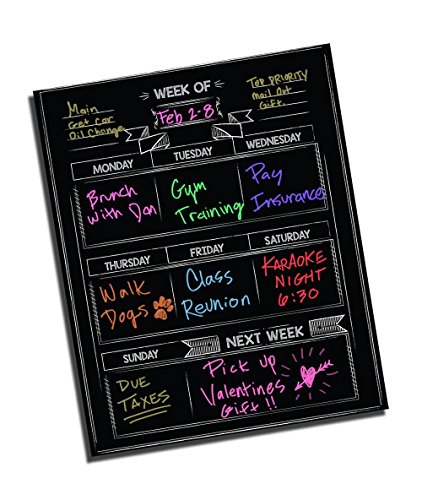 WEEK OF
Feb 2-8
Main
Get Car
Oil Change
Top PRIORITY
Mail Out
Gift
MONDAY
TUESDAY
WEDNESDAY
Brunch
With Dan
Gym
Training
Pay
Insurance
THURSDAY
FRIDAY
SATURDAY
Walk
Dogs
Class
Reunion
KARAOKE
NIGHT
6:30
SUNDAY
NEXT WEEK
DUE
TAXES
Pick up
Valentines
Gift!!